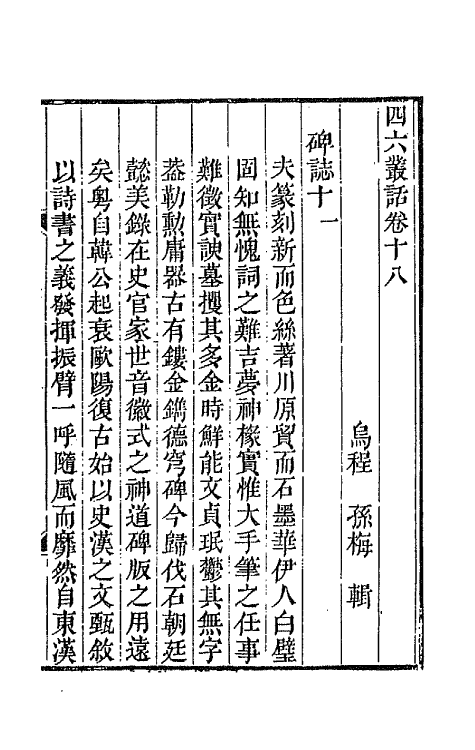 四六叢話卷十八
烏程 孫梅 輯
碑誌十一
夫篆刻新而色絲著川原貿而石墨華伊人白璧
固知無愧詞之難吉夢神椽實惟大手筆之任事
難徵實諛墓攫其多金時鮮能文貞珉鬱其無字
葢勒勲庸器古有鏤金鐫德穹碑今歸伐石朝廷
懿美錄在史官家世音徽式之神道碑版之用遠
矣粵自韓公起衰歐陽復古始以史漢之文甄敘
以詩書之義發揮振臂一呼隨風而靡然自東漢